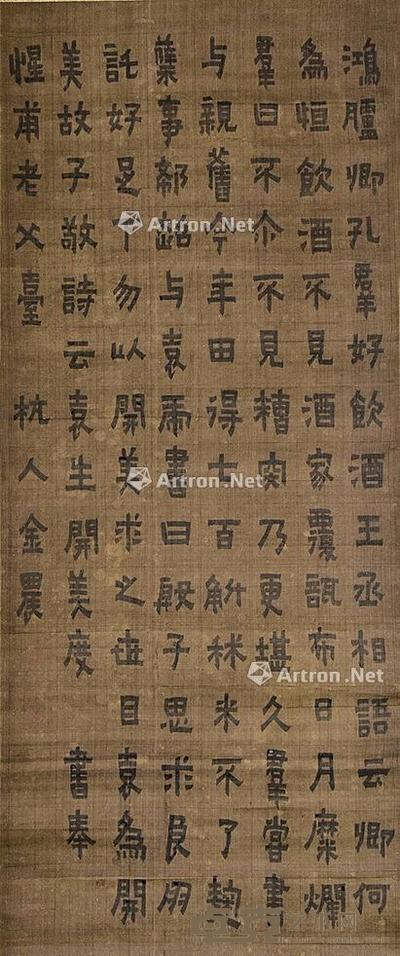 鴻臚卿孔羣好飲酒王丞相語云卿何
為恒飲酒不見酒家覆瓿布日月糜爛
羣曰不尒不見糟宍乃更堪久羣嘗書
与親舊今年田得七百斛秫米不了麹
糱事郗超与袁虎書曰殷子思求良朋
託好足下勿以開美求之世目袁為開
美故子敬詩云袁生開美度 書奉
惺甫老父臺 杭人金農
Artron.Net
Artron.Net
Artron.Net